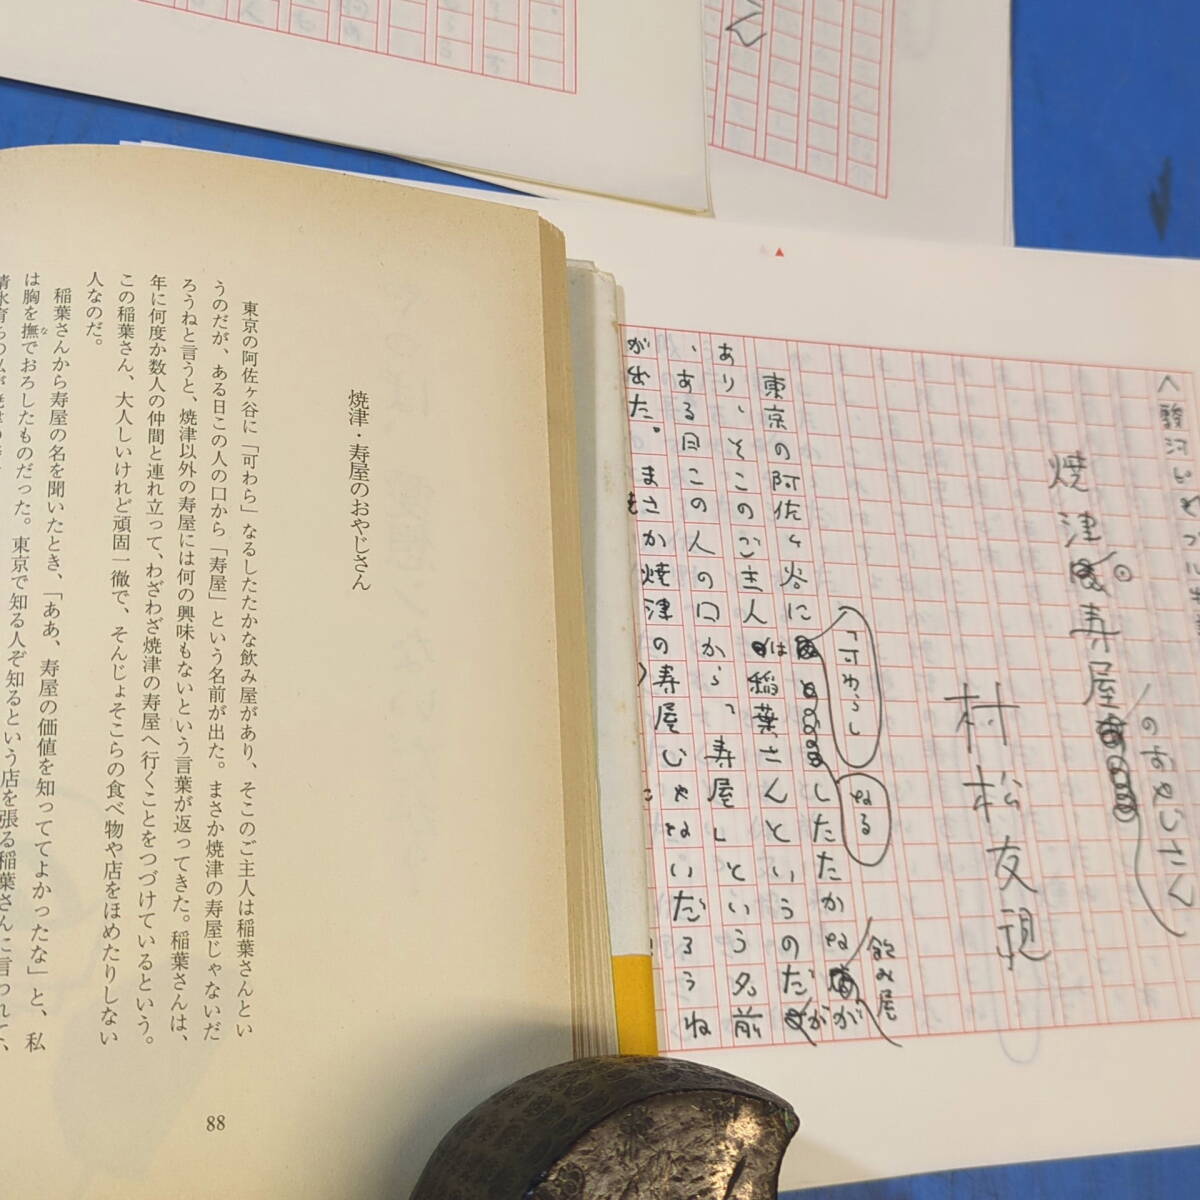 焼津・寿屋のおやじさん
東京の阿佐ヶ谷に「可わら」なるしたたかな飲み屋があり、そこのご主人は稲葉さんとい
うのだが、ある日この人の口から「寿屋」という名前が出た。まさか焼津の寿屋じゃないだ
ろうねと言うと、焼津以外の寿屋には何の興味もないという言葉が返ってきた。稲葉さんは、
年に何度か数人の仲間と連れ立って、わざわざ焼津の寿屋へ行くことをつづけているという。
この稲葉さん、大人しいけれど頑固一徹で、そんじょそこらの食べ物や店をほめたりしない
人なのだ。
稲葉さんから寿屋の名を聞いたとき、「ああ、寿屋の価値を知っててよかったな」と、私
は胸を撫でおろしたものだった。東京で知る人ぞ知るという店を張る稲葉さんに言われて、
な
88
焼津 寿屋
のおやじさん
村松友視
東京の阿佐ヶ谷に
「可わら」
なる
したたかな
飲み屋
が
あり、そこのご主人は稲葉さんというのだが
、ある日この人の口から「寿屋」という名前
が出た。まさか焼津の寿屋じゃないだろうね